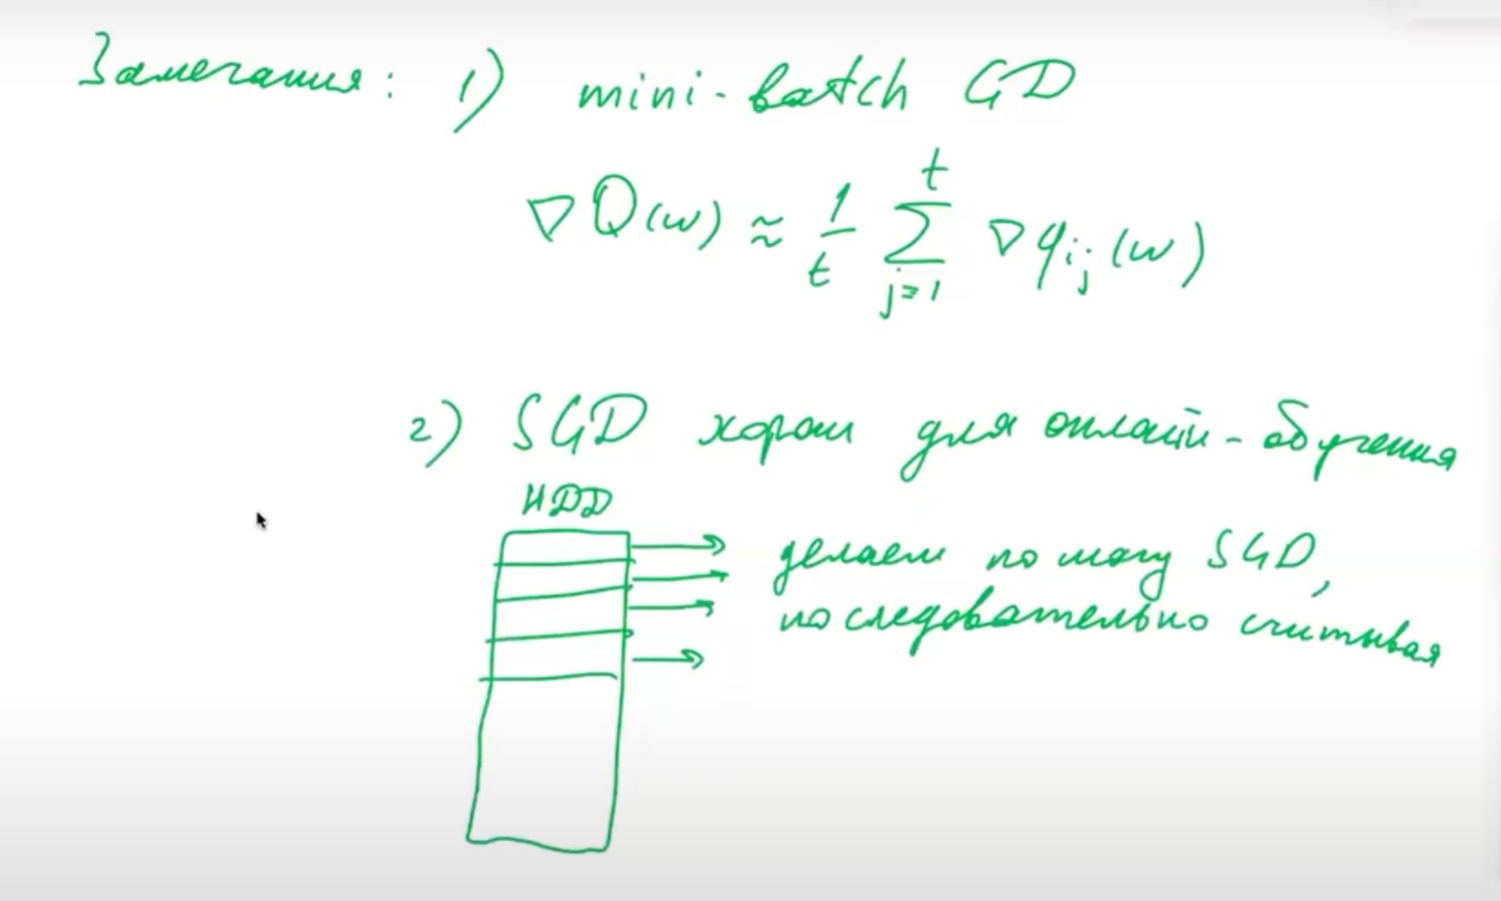 Замечания: 1) mini-batch GD
∇Q(w) ≈ 1/t ∑_{j=1}^{t} ∇q_{i_j}(w)
2) SGD хорош для онлайн-обучения
HDD
делаем по шагу SGD,
последовательно считывая